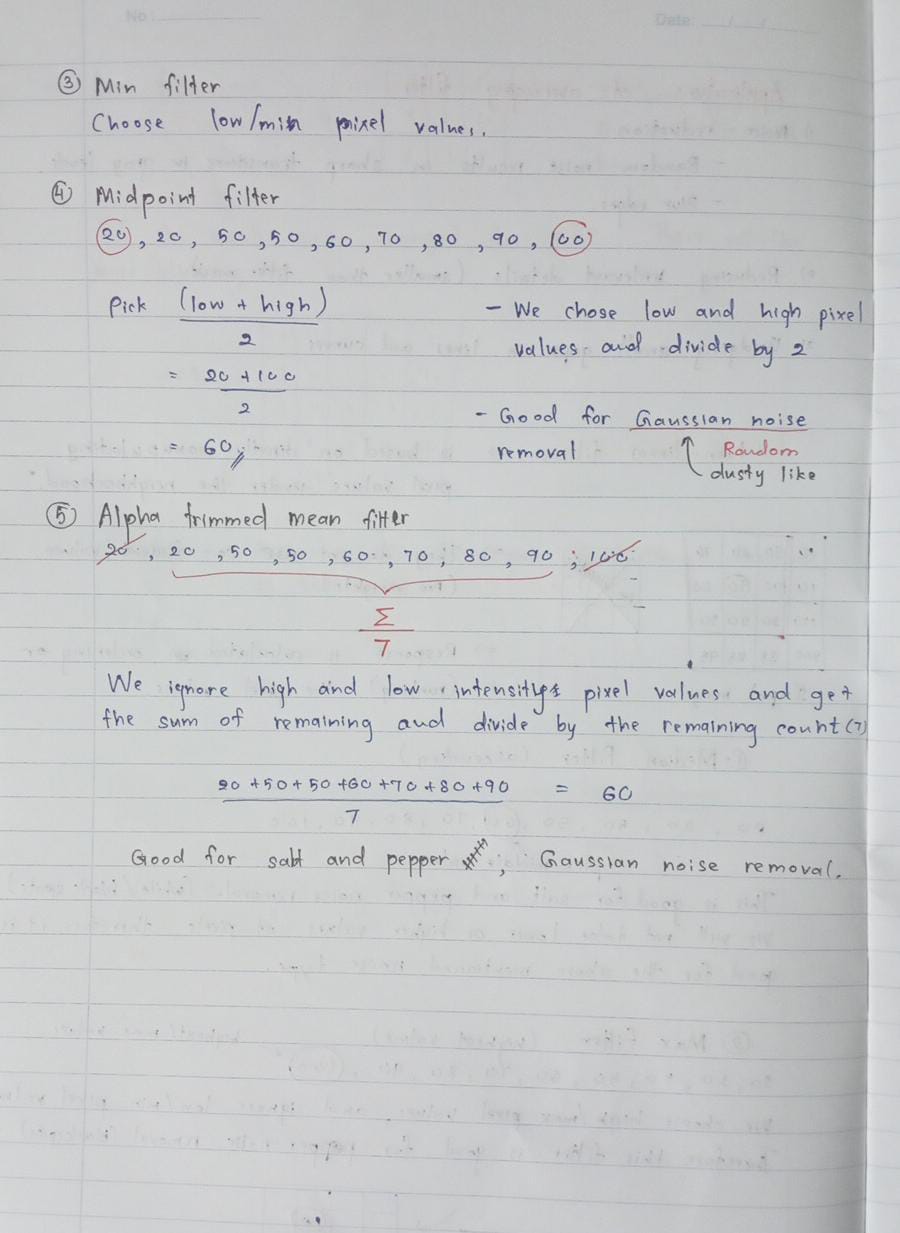 No :
Date: __/__/__
③ Min filter
Choose low/min pixel values.
④ Midpoint filter
20, 20, 50, 50, 60, 70, 80, 90, 100
Pick (low + high)
2
= 20 + 100
2
= 60
- We chose low and high pixel
values and divide by 2
- Good for Gaussian noise
removal
Random
dusty like
⑤ Alpha trimmed mean filter
20, 20, 50, 50, 60, 70, 80, 90, 100
Σ
7
We ignore high and low intensity pixel values and get
the sum of remaining and divide by the remaining count (7)
20 +50 + 50 +60 +70 +80 +90 = 60
7
Good for salt and pepper, Gaussian noise removal.